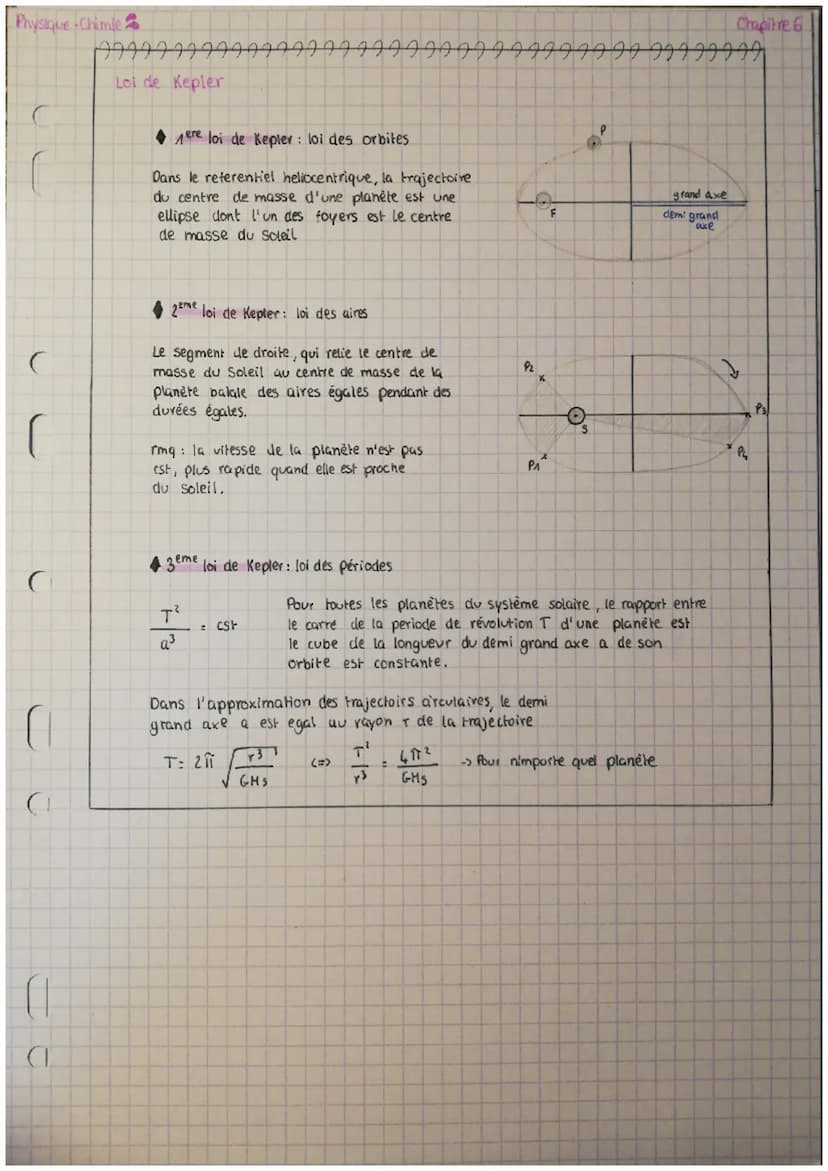 Physique-Chimie
Chapitre 6
Loi de Kepler
1ere loi de Kepler : loi des orbites
Dans le referentiel heliocentrique, la trajectoire
du centre de masse d'une planète est une
ellipse dont l'un des foyers est le centre
de masse du Soleil
P
F
grand axe
demi grand
axe
2eme loi de Kepler : loi des aires
Le segment de droite, qui relie le centre de
masse du Soleil au centre de masse de la
planète balaie des aires égales pendant des
durées égales.
rmq : la vitesse de la planète n'est pas
cst, plus rapide quand elle est proche
du soleil.
P2
P3
S
P1
P4
3eme loi de Kepler : loi des périodes
T²/a³ = cst
Pour toutes les planètes du système solaire, le rapport entre
le carré de la periode de révolution T d'une planète est
le cube de la longueur du demi grand axe a de son
orbite est constante.
Dans l'approximation des trajectoirs circulaires, le demi
grand axe a est egal au rayon r de la trajectoire
T = 2π √(r³/GMs) <=> T²/r³ = 4π²/GMs -> Pour nimporte quel planète